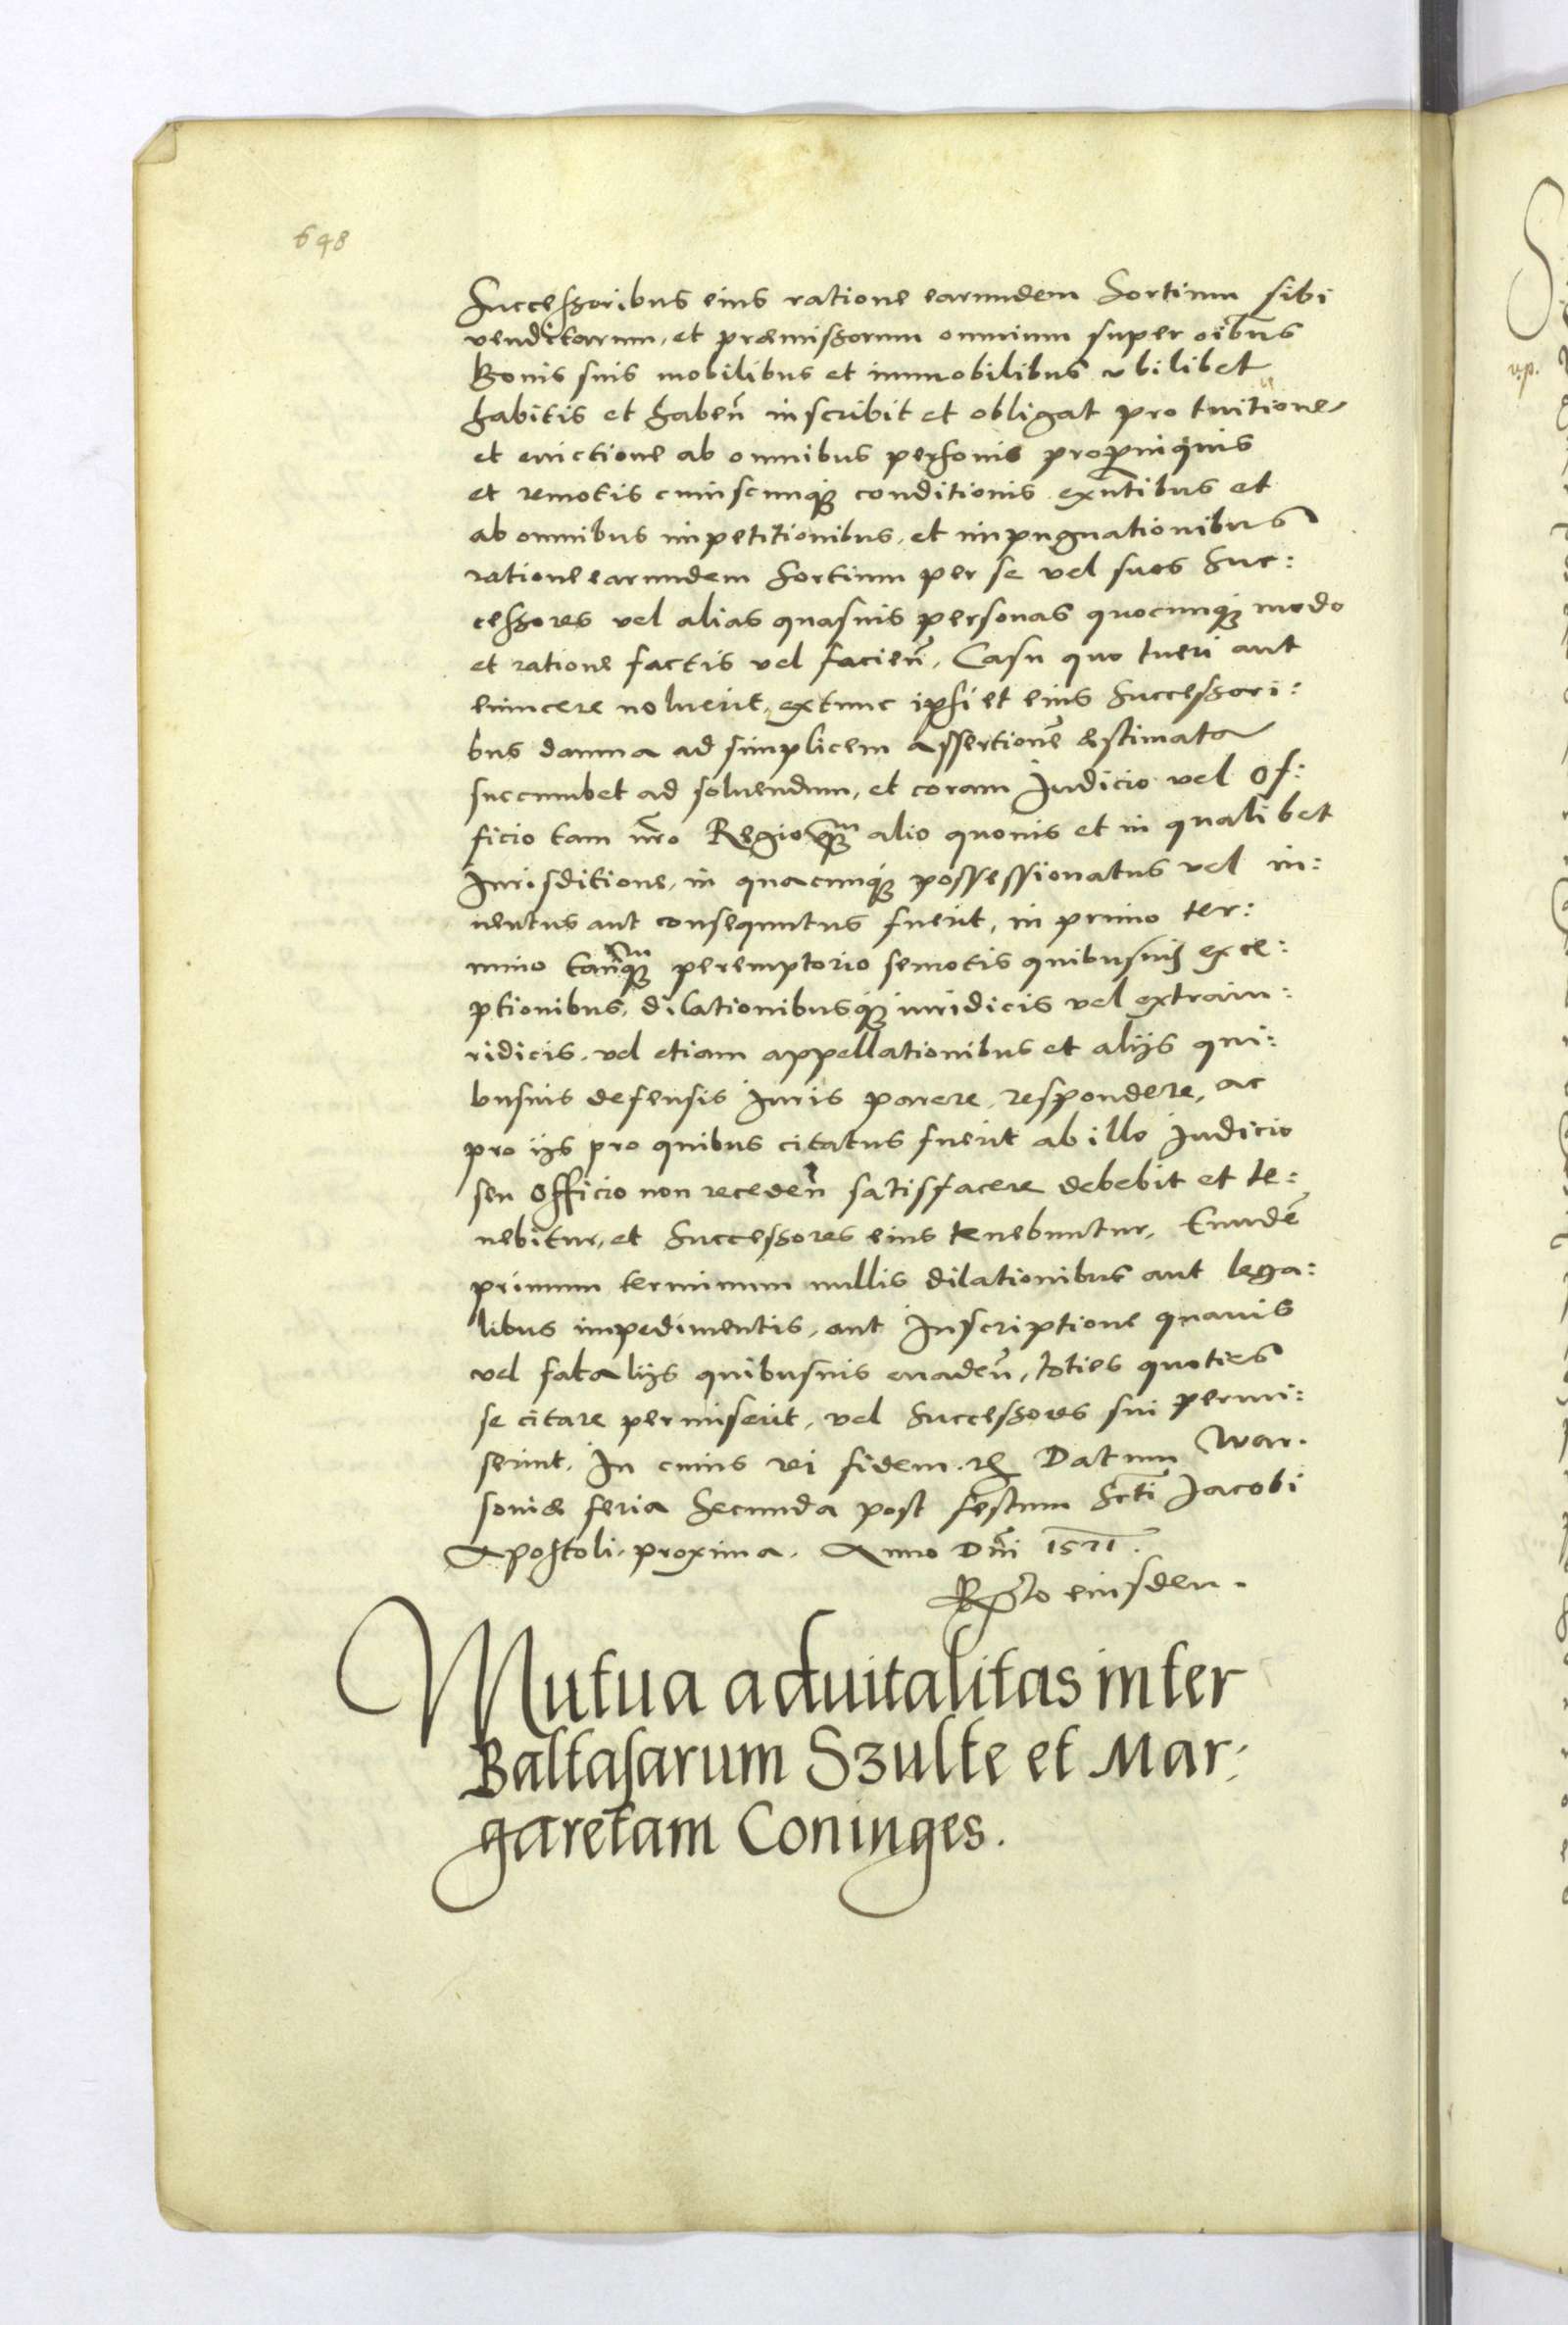 648
Successoribus eius ratione earundem Sortium sibi
venditarum, et præmissorum omnium super oībus
Bonis suis mobilibus et immobilibus vbilibet
habitis et habeñ inscribit et obligat pro tuitione
et euictione ab omnibus personis propinquis
et remotis cuiuscunqȝ conditionis exn̄tibus et
ab omnibus impetitionibus, et impugnationibus
ratione earundem Sortium per se vel suos Suc:
cessores vel alias quasuis personas quocunqȝ modo
et ratione factis vel facieñ, Casu quo tueri aut
euincere noluerit, extunc ipsi et eius Successori:
bus damna ad simplicem assertionē æstimata
succumbet ad soluendum, et coram Judicio vel Of:
ficio tam nr̄o Regio qȝm alio quouis et in qualibet
Jurisditione, in quacunqȝ possessionatus vel in:
uentus aut consequutus fuerit, in primo ter:
mino tanqȝm peremptorio semotis quibusuis exce:
ptionibus, dilationibusqȝ iuridicis vel extraiu:
ridicis, vel etiam appellationibus et alijs qui:
busuis defensis Juris parere, respondere, ac
pro ijs pro quibus citatus fuerit ab illo Judicio
seu Officio non recedeñ satisfacere debebit et te:
nebitur, et Successores eius tenebuntur, Eundē
primum terminum nullis dilationibus aut lega:
libus impedimentis, aut Inscriptione quauis
vel fatalijs quibusuis euadeñ, toties quoties
se citare permiserit, vel Successores sui permi:
serint. In cuius rei fidem. &c Datum War.
souiæ feria Secunda post festum Scti Jacobi
Apostoli proxima. Anno Dn̄i 1571.
Rᵗᵒ eiusdem.
Mutua aduitalitas inter
Baltasarum Szulte et Mar:
garetam Coninges.